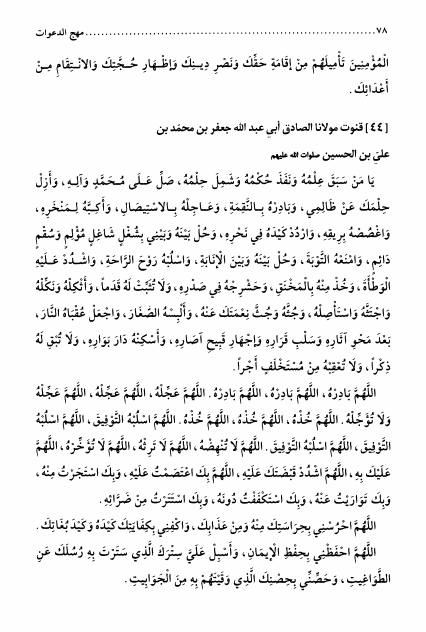 ٧٨ ............................................................ مهج الدعوات
الْمُؤْمِنِينَ تَأْمِيلَهُمْ مِنْ إِقَامَةِ حَقِّكَ وَنَصْرِ دِيـنِكَ وَإِظْـهَارِ حُـجَّتِكَ وَالانْـتِقَامِ مِـنْ
أَعْدَائِكَ .
[ ٤٤ ] قنوت مولانا الصادق أبي عبد الله جعفر بن محمّد بن
عليّ بن الحسين صلوات الله عليهم
يَا مَنْ سَبَقَ عِلْمُهُ وَنَفَذَ حُكْمُهُ وَشَمِلَ حِلْمُهُ، صَلِّ عَـلَى مُـحَمَّدٍ وَآلِـهِ، وَأَزِلْ
حِلْمَكَ عَنْ ظَالِمِي، وَبَادِرْهُ بِـالنَّقِمَةِ، وَعَـاجِلْهُ بِـالاسْتِيصَالِ، وَأَكِبَّهُ لِـمَنْخِرِهِ،
وَاغْصُصْهُ بِرِيقِهِ، وَارْدُدْ كَيْدَهُ فِي نَحْرِهِ، وَحُلْ بَيْنَهُ وَبَيْنِي بِشُغْلٍ شَاغِلٍ مُؤْلِمٍ وَسُقْمٍ
دَائِمٍ، وَامْنَعْهُ التَّوْبَةَ ، وَحُلْ بَيْنَهُ وَبَيْنَ الْإِنَابَةِ، وَاسْلُبْهُ رَوْحَ الرَّاحَةِ، وَاشْـدُدْ عَـلَيْهِ
الْوَطْأَةَ، وَخُذْ مِنْهُ بِالْمَخْنَقِ، وَحَشْرِجْهُ فِي صَدْرِهِ، وَلَا تُثَبِّتْ لَهُ قَدَماً، وَأَثْكِلْهُ وَنَكِّلْهُ
وَاجْتَثَّهُ وَاسْتَأْصِلْهُ، وَجُثَّهُ وَجُثَّ نِعْمَتَكَ عَنْهُ، وَأَلْبِسْهُ الصَّغَارَ، وَاجْعَلْ عُقْبَاهُ النَّارَ،
بَعْدَ مَحْوِ آثَارِهِ وَسَلْبِ قَرَارِهِ وَإِجْهَارِ قَبِيحِ آصَارِهِ، وَأَسْكِنْهُ دَارَ بَوَارِهِ، وَلَا تُبْقِ لَهُ
ذِكْراً، وَلَا تُعْقِبْهُ مِنْ مُسْتَخْلَفٍ أَجْراً .
اللَّهُمَّ بَادِرْهُ، اللَّهُمَّ بَادِرْهُ، اللَّهُمَّ بَادِرْهُ . اللَّهُمَّ عَجِّلْهُ، اللَّهُمَّ عَجِّلْهُ، اللَّهُمَّ عَجِّلْهُ
وَلَا تُؤَجِّلْهُ . اللَّهُمَّ خُذْهُ، اللَّهُمَّ خُذْهُ، اللَّهُمَّ خُذْهُ . اللَّهُمَّ اسْلُبْهُ التَّوْفِيقَ، اللَّهُمَّ اسْلُبْهُ
التَّوْفِيقَ، اللَّهُمَّ اسْلُبْهُ التَّوْفِيقَ. اللَّهُمَّ لَا تُنْهِضْهُ، اللَّهُمَّ لَا تَرِثْهُ، اللَّهُمَّ لَا تُؤَخِّرْهُ، اللَّهُمَّ
عَلَيْكَ بِهِ، اللَّهُمَّ اشْدُدْ قَبْضَتَكَ عَلَيْهِ، اللَّهُمَّ بِكَ اعْتَصَمْتُ عَلَيْهِ، وَبِكَ اسْتَجَرْتُ مِنْهُ،
وَبِكَ تَوَارَيْتُ عَنْهُ، وَبِكَ اسْتَكْفَفْتُ دُونَهُ، وَبِكَ اسْتَتَرْتُ مِنْ ضَرَّائِهِ .
اللَّهُمَّ احْرُسْنِي بِحِرَاسَتِكَ مِنْهُ وَمِنْ عَذَابِكَ، وَاكْفِنِي بِكِفَايَتِكَ كَيْدَهُ وَكَيْدَ بُغَاتِكَ .
اللَّهُمَّ احْفَظْنِي بِحِفْظِ الْإِيمَانِ، وَأَسْبِلْ عَلَيَّ سِتْرَكَ الَّذِي سَتَرْتَ بِهِ رُسُلَكَ عَنِ
الطَّوَاغِيتِ، وَحَصِّنِّي بِحِصْنِكَ الَّذِي وَقَيْتَهُمْ بِهِ مِنَ الْجَوَابِيتِ .